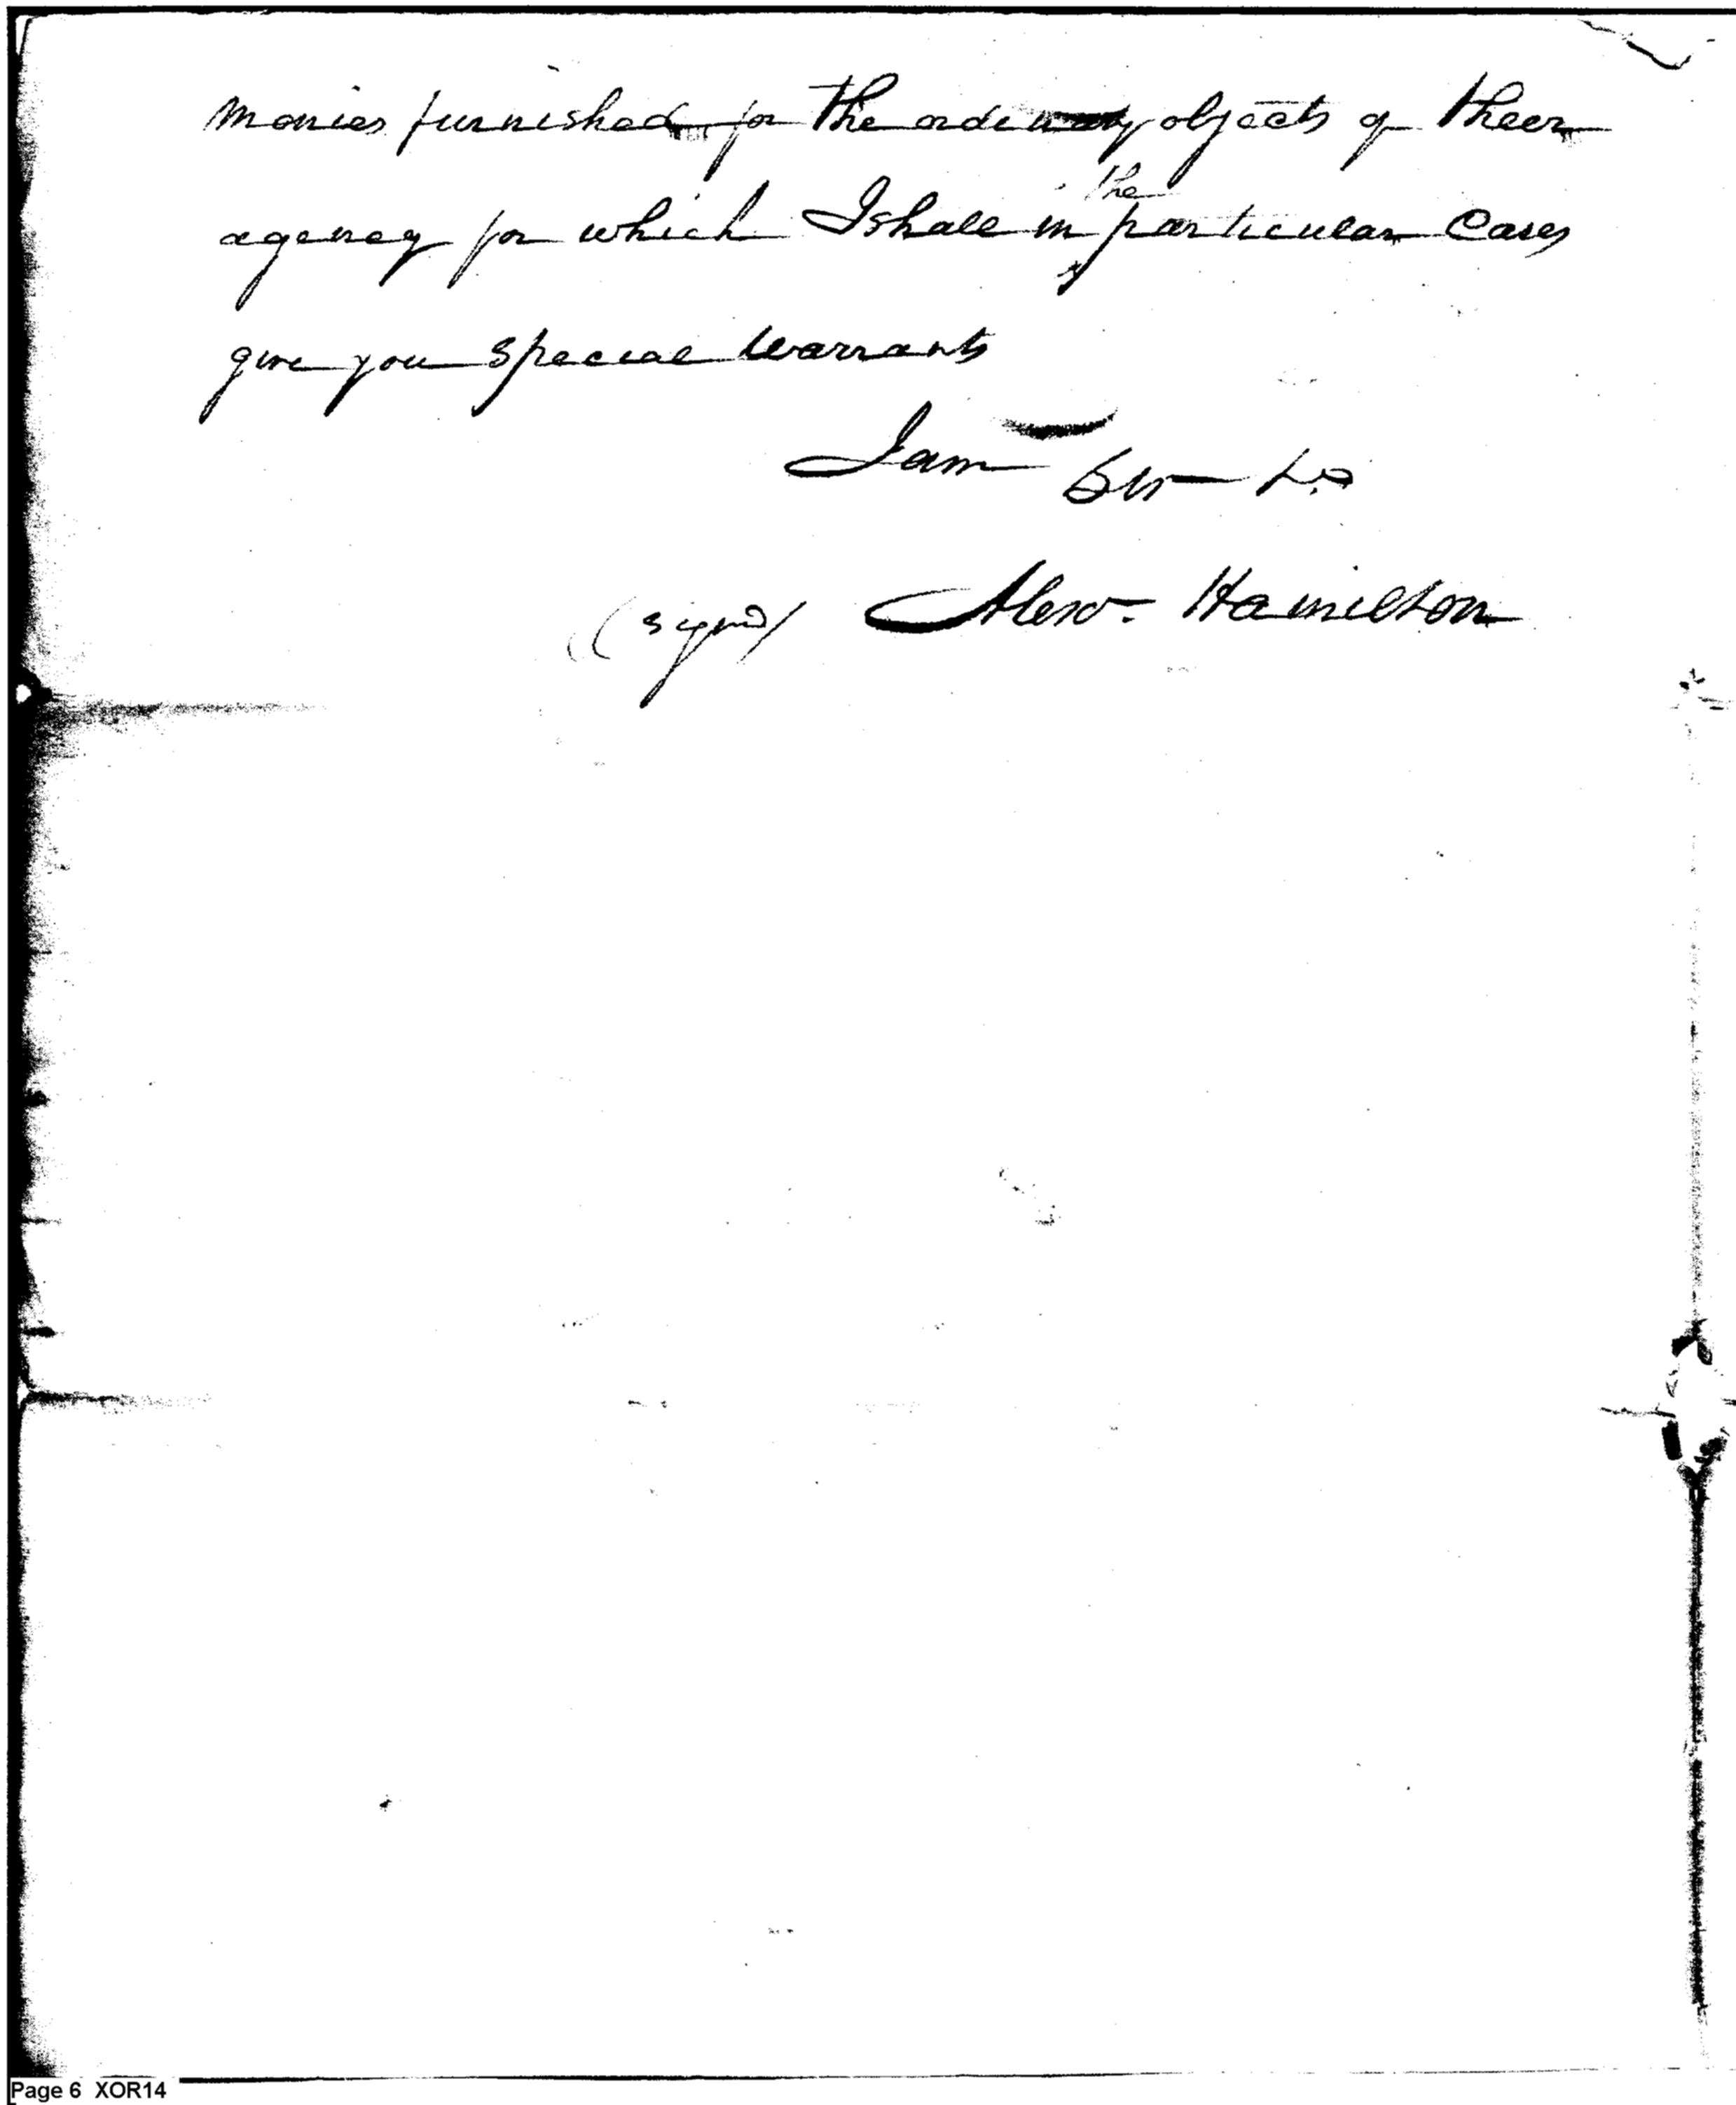 monies furnished for the ordinary objects of their
agency for which I shall in the particular Cases
give you special warrants
I am Sir &c
(signd) Alexr. Hamilton
Page 6 XOR14